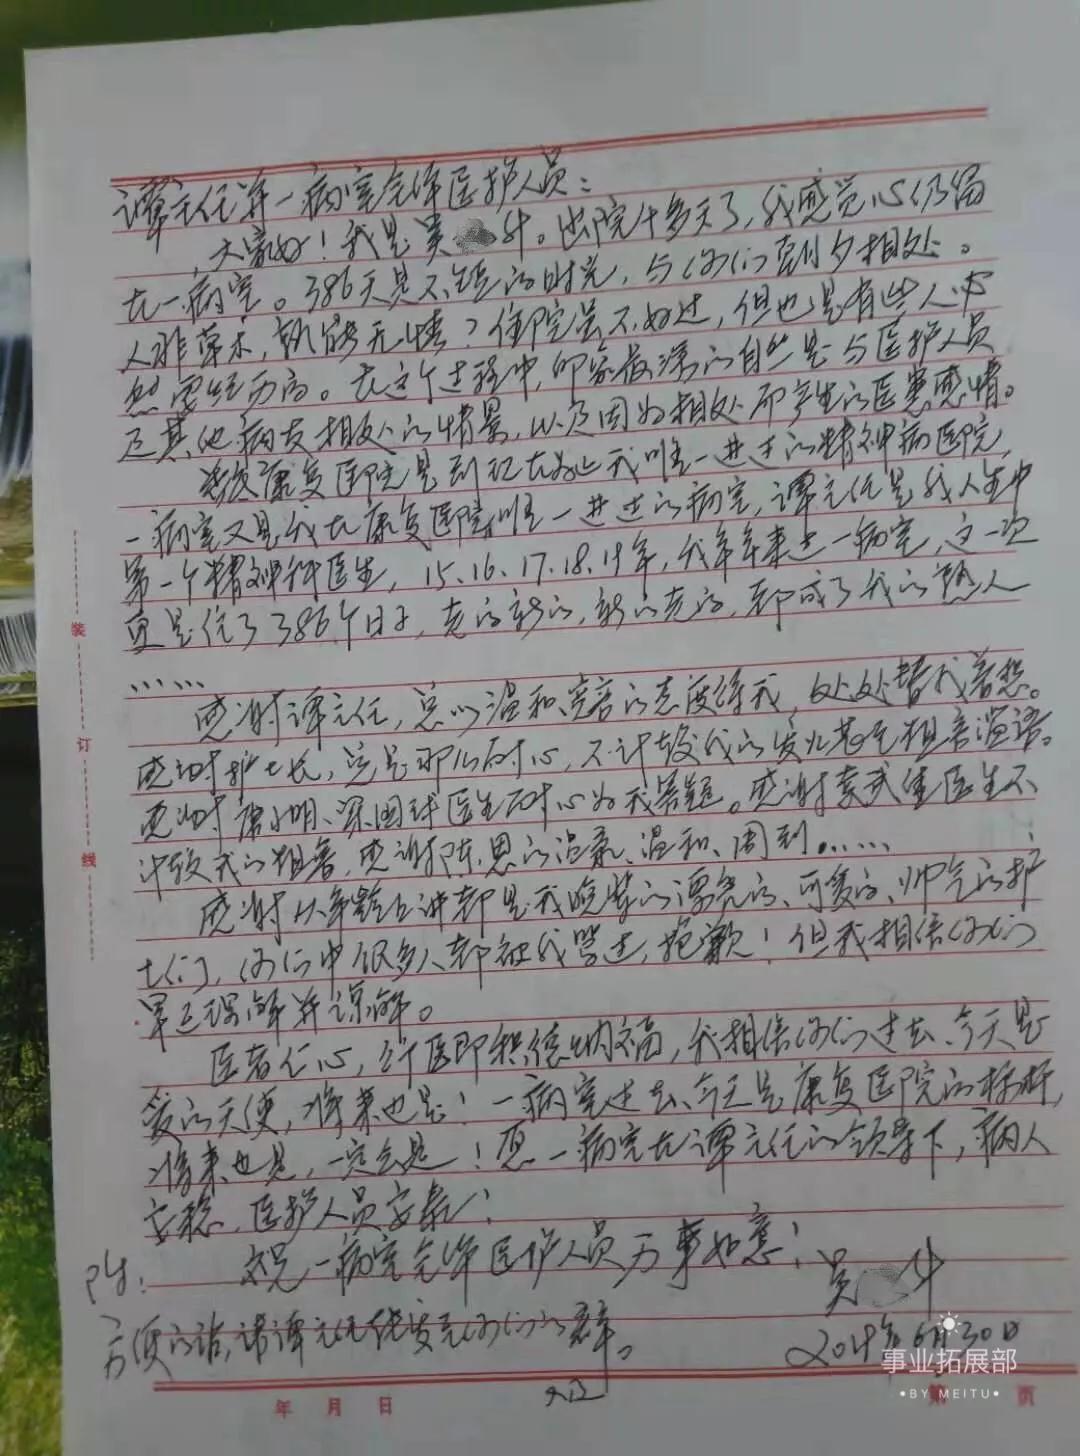 谭主任并一病室全体医护人员：
大家好！我是吴 斗。出院十多天了，我感觉心仍留
在一病室。386天是不短的时光，与你们朝夕相处。
人非草木，孰能无情？住院虽不好过，但也是有些人必
然要经历的。在这个过程中，印象最深的自然是与医护人员
及其他病友相处的情景，以及因为相处而产生的医患感情。
康复医院是到现在为止我唯一进过的精神病医院，
一病室又是我在康复医院唯一进过的病室，谭主任是我人生中
第一个精神科医生，15、16、17、18、19年，我年年来过一病室，这一次
更是住了386个日子，老的新的，新的老的，都成了我的熟人
……
感谢谭主任，总以温和、宽容的态度待我，处处替我着想。
感谢护士长，总是那么耐心，不计较我的发火甚至粗言滥语。
更感谢 医生耐心为我答疑。感谢袁 医生不
计较我的粗鲁，感谢陈 的温柔、温和、周到……
感谢从年龄上讲都是我晚辈的漂亮的、可爱的、帅气的护
士们，你们中很多人都被我骂过，抱歉！但我相信你们
早已理解并谅解。
医者仁心，行医即积德纳福，我相信你们过去、今天是
爱的天使，将来也是！一病室过去、今天是康复医院的标杆，
将来也是，一定会是！愿一病室在谭主任的领导下，病人
安稳，医护人员安泰！
祝一病室全体医护人员万事如意！
附：
吴 斗
方便的话，请谭主任转发至你们的群。
2019年6月30日
装
订
线
年 月 日
第 页
事业拓展部
•BY MEITU•